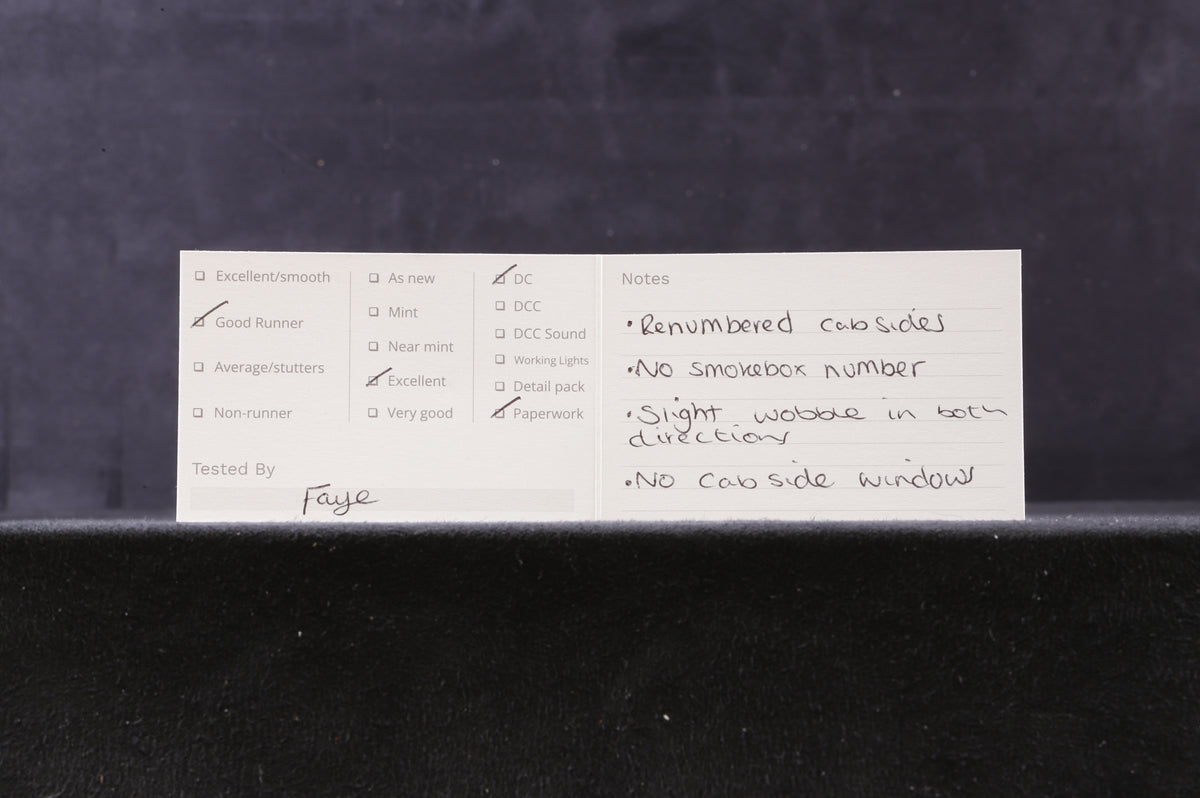 ☐ Excellent/smooth
☑ Good Runner
☐ Average/stutters
☐ Non-runner
☐ As new
☐ Mint
☐ Near mint
☑ Excellent
☐ Very good
☑ DC
☐ DCC
☐ DCC Sound
☐ Working Lights
☐ Detail pack
☑ Paperwork
Tested By
Faye
Notes
• Renumbered cabsides
• No smokebox number
• Sight wobble in both
directions
• No cabside windows